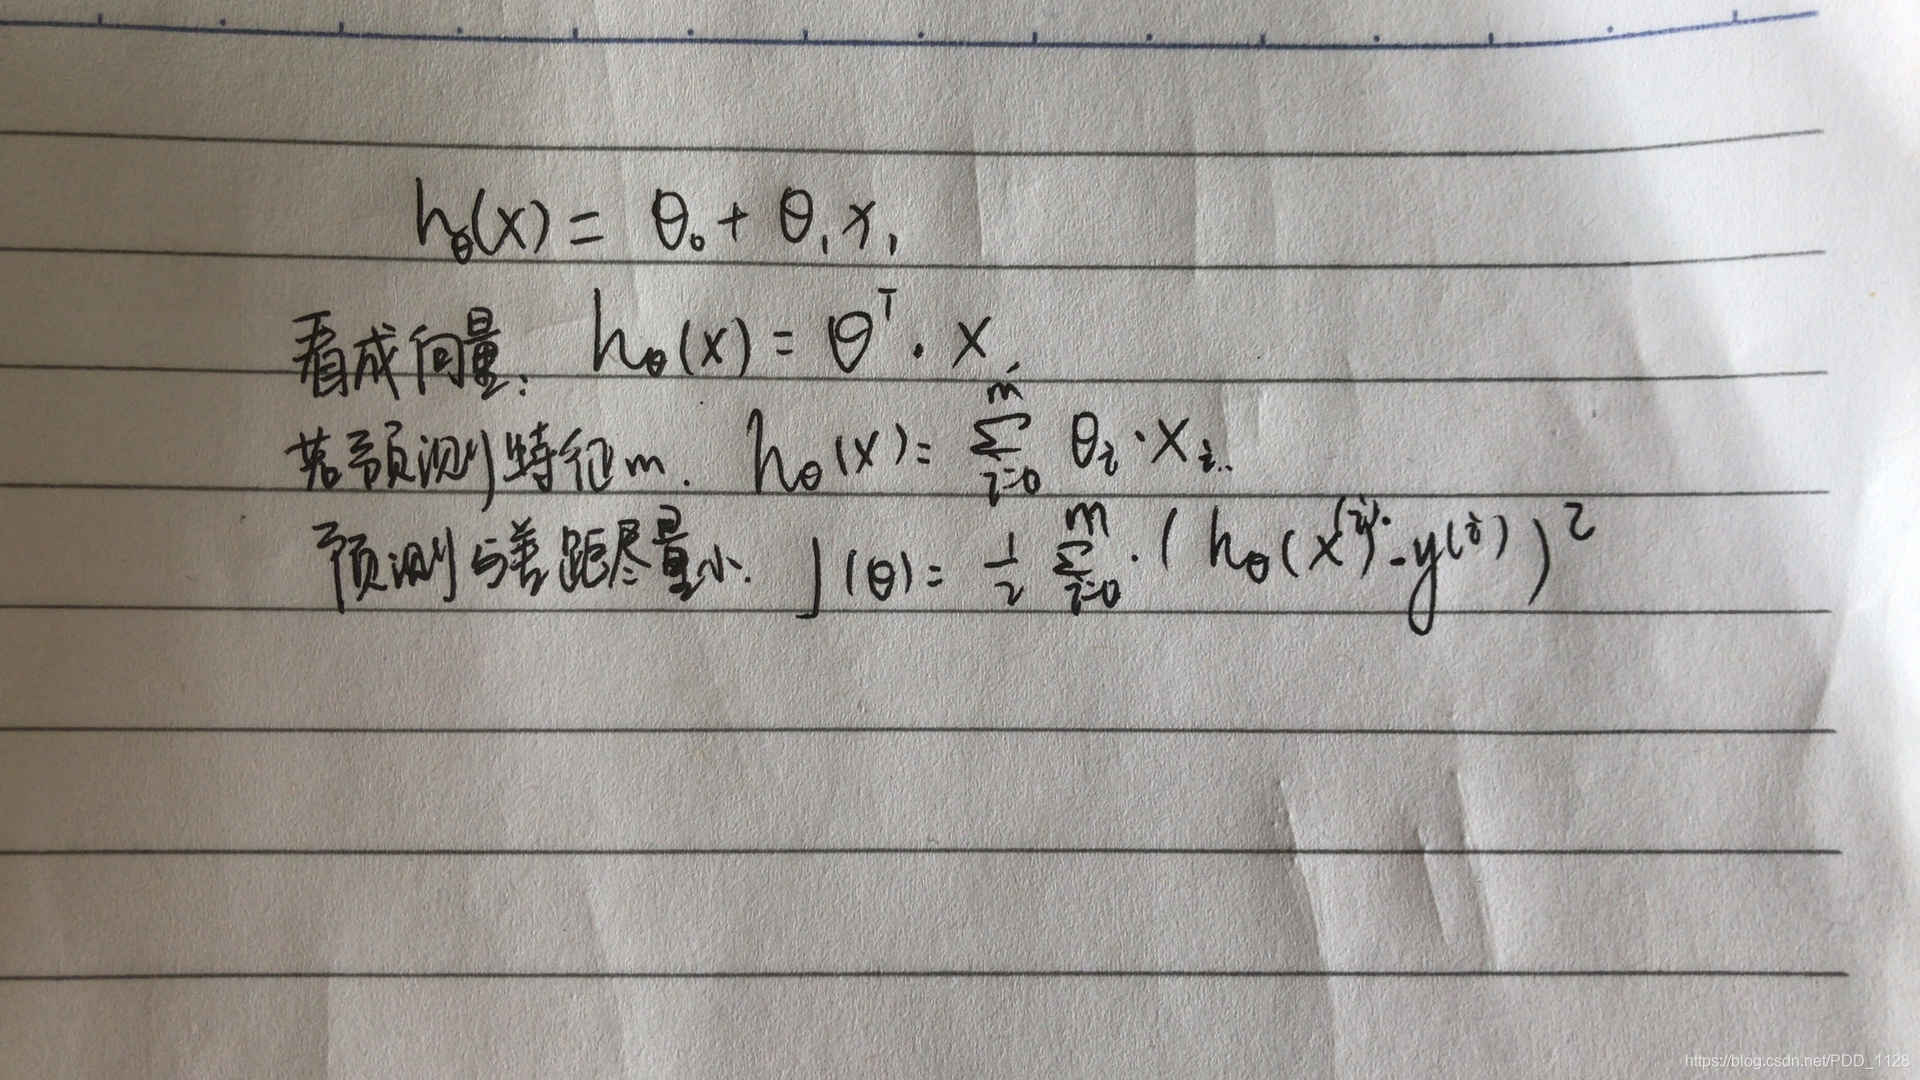 hθ(x) = θ₀ + θ₁x₁
看成向量: hθ(x) = θᵀ · x
若预测特征m. hθ(x) = Σᵢ₌₀ᵐ θᵢ · xᵢ..
预测与差距尽量小. J(θ) = 1/2 Σᵢ₌₀ᵐ · (hθ(x⁽ⁱ⁾) - y(i))²
https://blog.csdn.net/PDD_1128